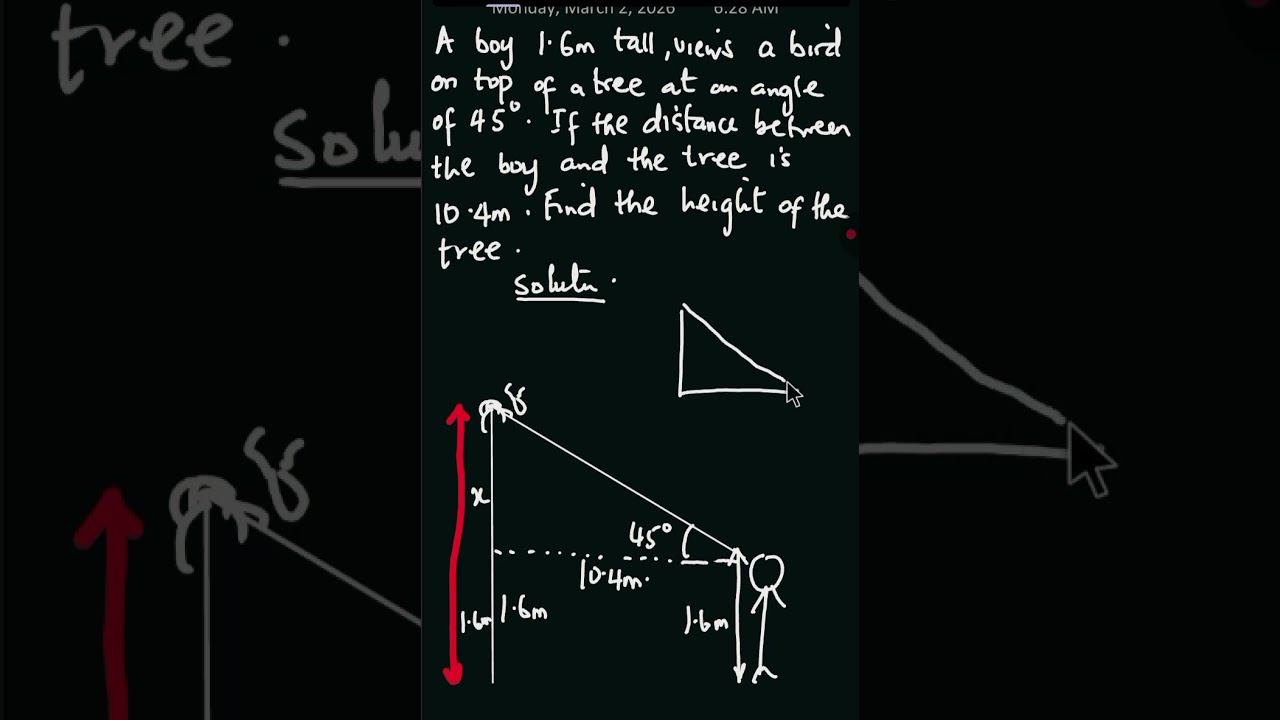 Monday, March 2, 2026 6:28 AM
A boy 1.6m tall, views a bird
on top of a tree at an angle
of 45°. If the distance between
the boy and the tree is
10.4m. Find the height of the
tree.
Solutn.
x
45°
10.4m.
1.6m
1.6m
1.6m
tree.
Solu